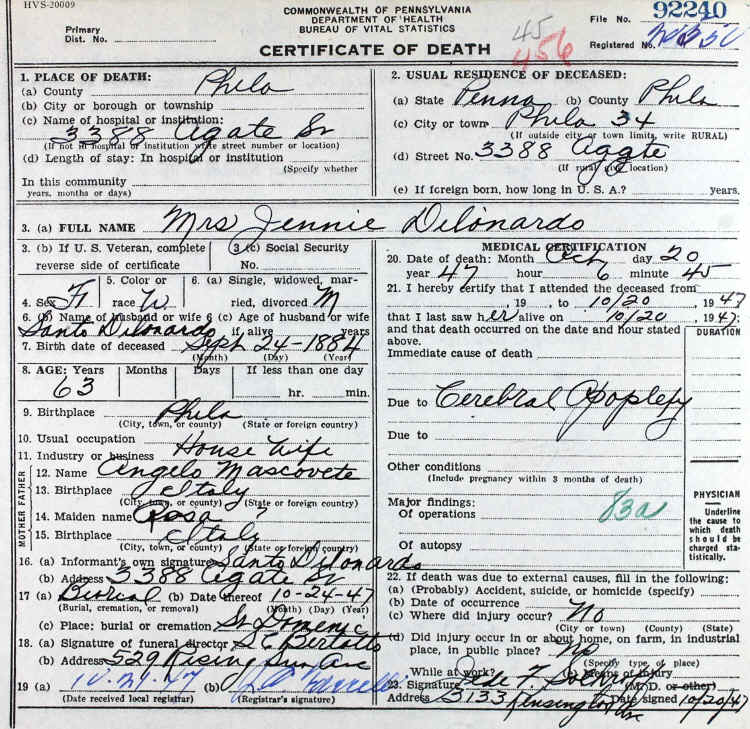 HVS-20009
COMMONWEALTH OF PENNSYLVANIA
DEPARTMENT OF HEALTH
BUREAU OF VITAL STATISTICS
CERTIFICATE OF DEATH
Primary
Dist. No.
45
456
File No. 92240
Registered No.
1. PLACE OF DEATH:
(a) County Phila
(b) City or borough or township
(c) Name of hospital or institution:
3388 Agate St
(If not in hospital or institution write street number or location)
(d) Length of stay: In hospital or institution
(Specify whether
In this community
years, months or days)
2. USUAL RESIDENCE OF DECEASED:
(a) State Penna (b) County Phila
(c) City or town Phila 34
(If outside city or town limits, write RURAL)
(d) Street No. 3388 Aggte
(If rural give location)
(e) If foreign born, how long in U. S. A.? years.
3. (a) FULL NAME Mrs Jennie Dilonardo
3. (b) If U. S. Veteran, complete
reverse side of certificate
3 (c) Social Security
No.
4. Sex F
5. Color or
race W
6. (a) Single, widowed, mar-
ried, divorced M
6. (b) Name of husband or wife
Santo Dilonardo
6 (c) Age of husband or wife
if alive years
7. Birth date of deceased Sept 24-1884
(Month) (Day) (Year)
8. AGE: Years Months Days If less than one day
63 hr. min.
9. Birthplace Phila
(City, town, or county) (State or foreign country)
10. Usual occupation House Wife
11. Industry or business
FATHER
12. Name Angelo Mascovete
13. Birthplace Italy
(City, town, or county) (State or foreign country)
MOTHER
14. Maiden name Rosa ?
15. Birthplace Italy
(City, town, or county) (State or foreign country)
16. (a) Informant's own signature Santo Dilonardo
(b) Address 3388 Agate St
17 (a) Beurial (b) Date thereof 10-24-47
(Burial, cremation, or removal) (Month) (Day) (Year)
(c) Place: burial or cremation St Domenic
18. (a) Signature of funeral director S C Bertotto
(b) Address 529 Rising Sun Ave
19 (a) 10.21.47 (b)
(Date received local registrar) (Registrar's signature)
MEDICAL CERTIFICATION
20. Date of death: Month Oct day 20
year 47 hour 6 minute 45
21. I hereby certify that I attended the deceased from
, 19 , to 10/20 , 1947
that I last saw her alive on 10/20 , 1947;
and that death occurred on the date and hour stated
above.
DURATION
Immediate cause of death
Due to Cerebral Apoplexy
Due to
Other conditions
(Include pregnancy within 3 months of death)
Major findings:
Of operations 83a
Of autopsy
PHYSICIAN
Underline
the cause to
which death
should be
charged sta-
tistically.
22. If death was due to external causes, fill in the following:
(a) (Probably) Accident, suicide, or homicide (specify)
(b) Date of occurrence No
(c) Where did injury occur?
(City or town) (County) (State)
(d) Did injury occur in or about home, on farm, in industrial
place, in public place? No
(Specify type of place)
While at work? (e) Means of injury
23. Signature (M. D. or other)
Address 3133 Kensington Ave Date signed 10/20/47